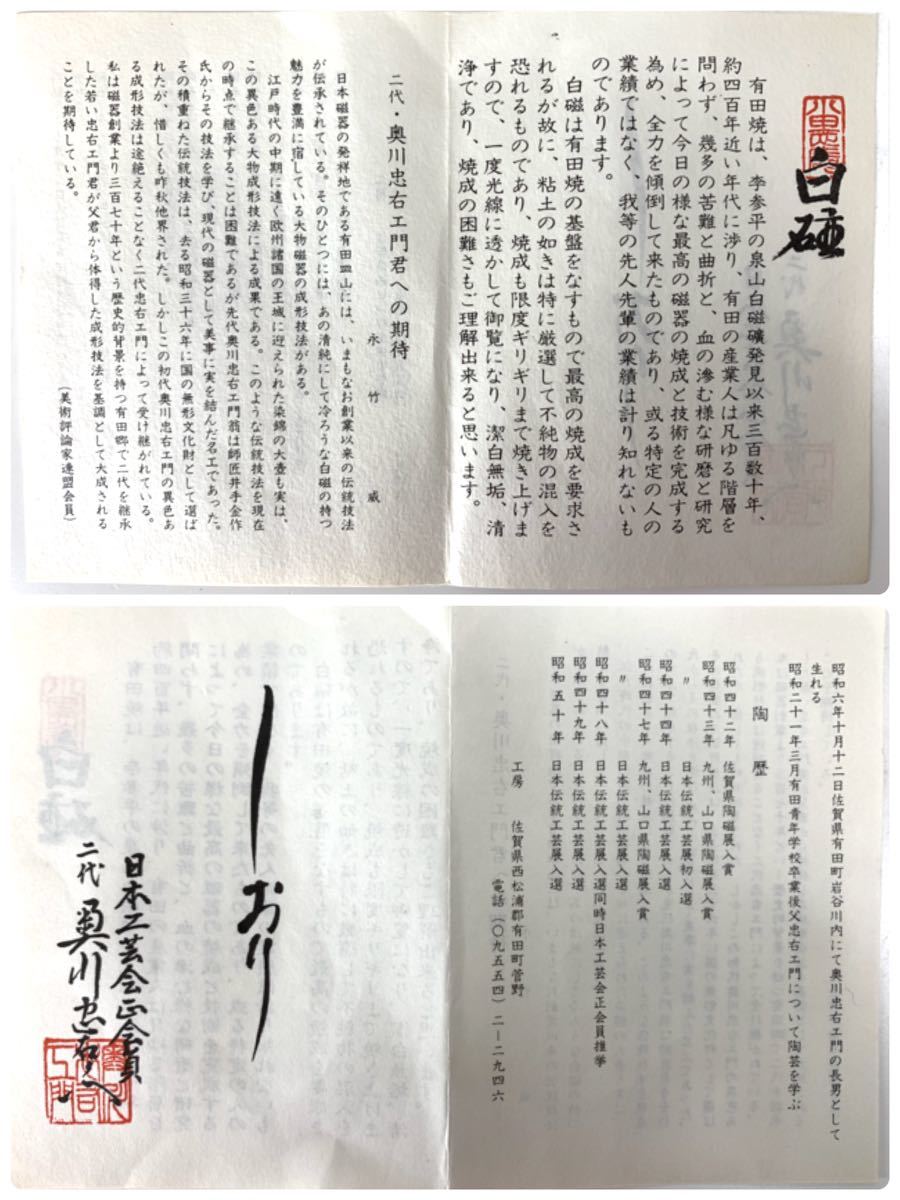 白磁
有田焼は、李参平の泉山白磁礦発見以来三百数十年、
約四百年近い年代に渉り、有田の産業人は凡ゆる階層を
問わず、幾多の苦難と曲折と、血の滲む様な研磨と研究
によって今日の様な最高の磁器の焼成と技術を完成する
為め、全力を傾倒して来たものであり、或る特定の人の
業績ではなく、我等の先人先輩の業績は計り知れないも
のであります。
白磁は有田焼の基盤をなすもので最高の焼成を要求さ
れるが故に、粘土の如きは特に厳選して不純物の混入を
恐れるものであり、焼成も限度ギリギリまで焼き上げま
すので、一度光線に透かして御覧になり、潔白無垢、清
浄であり、焼成の困難さもご理解出来ると思います。
二代・奥川忠右エ門君への期待
永竹威
日本磁器の発祥地である有田皿山には、いまもなお創業以来の伝統技法
が伝承されている。そのひとつには、あの清純にして冷ろうな白磁の持つ
魅力を豊満に宿している大物磁器の成形技法がある。
江戸時代の中期に遠く欧州諸国の王城に迎えられた染錦の大壺も実は、
この異色ある大物成形技法による成果である。このような伝統技法を現在
の時点で継承することは困難であるが先代奥川忠右エ門翁は師匠井手金作
氏からその技法を学び、現代の磁器として美事に実を結んだ名工であった。
その積重ねた伝統技法は、去る昭和三十六年に国の無形文化財として選ば
れたが、惜しくも昨秋他界された。しかしこの初代奥川忠右エ門の異色あ
る成形技法は途絶えることなく二代忠右エ門によって受け継がれている。
私は磁器創業より三百七十年という歴史的背景を持つ有田郷で二代を継承
した若い忠右エ門君が父君から体得した成形技法を基調として大成される
ことを期待している。
（美術評論家連盟会員）
昭和六年十月十二日佐賀県有田町岩谷川内にて奥川忠右エ門の長男として
生れる
昭和二十一年三月有田青年学校卒業後父忠右エ門について陶芸を学ぶ
陶歴
昭和四十二年 佐賀県陶磁展入賞
昭和四十三年 九州、山口県陶磁展入賞
〃 日本伝統工芸展初入選
昭和四十四年 日本伝統工芸展入選
昭和四十七年 九州、山口県陶磁展入賞
〃 日本伝統工芸展入選
昭和四十八年 日本伝統工芸展入選同時日本工芸会正会員推挙
昭和四十九年 日本伝統工芸展入選
昭和五十年 日本伝統工芸展入選
工房 佐賀県西松浦郡有田町菅野
電話（〇九五五四）二ー二九四六
しおり
日本工芸会正会員
二代 奥川忠右エ門